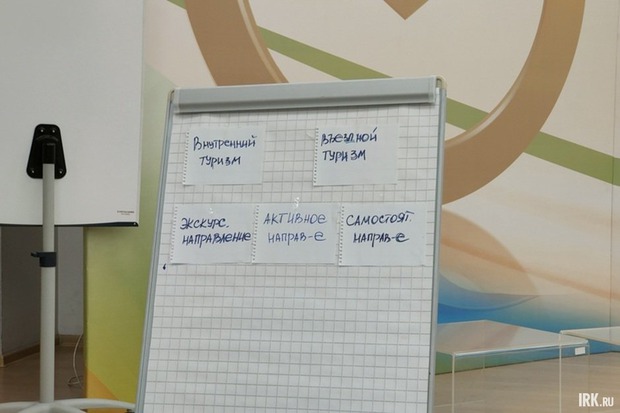 Внутренний
туризм
Въездной
туризм
экскурс.
направление
Активное
направ-е
Самостоят.
направ-е
IRK.ru